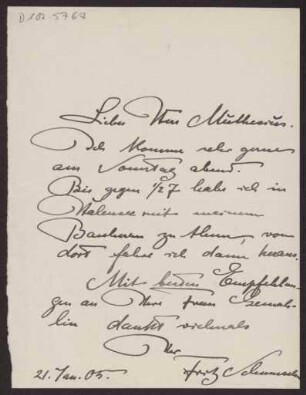 D 102-5767
Lieber Herr Muthesius.
Ich komme sehr gerne
am Sonntag abend.
Bis gegen 1/2 7 habe ich in
Halensee mit meinem
Bauherrn zu thun, von
dort fahre ich dann heraus.
Mit besten Empfehlun-
gen an Ihre Frau Gemah-
lin dankt vielmals
Ihr
Fritz Schumacher
21. Jan. 05.